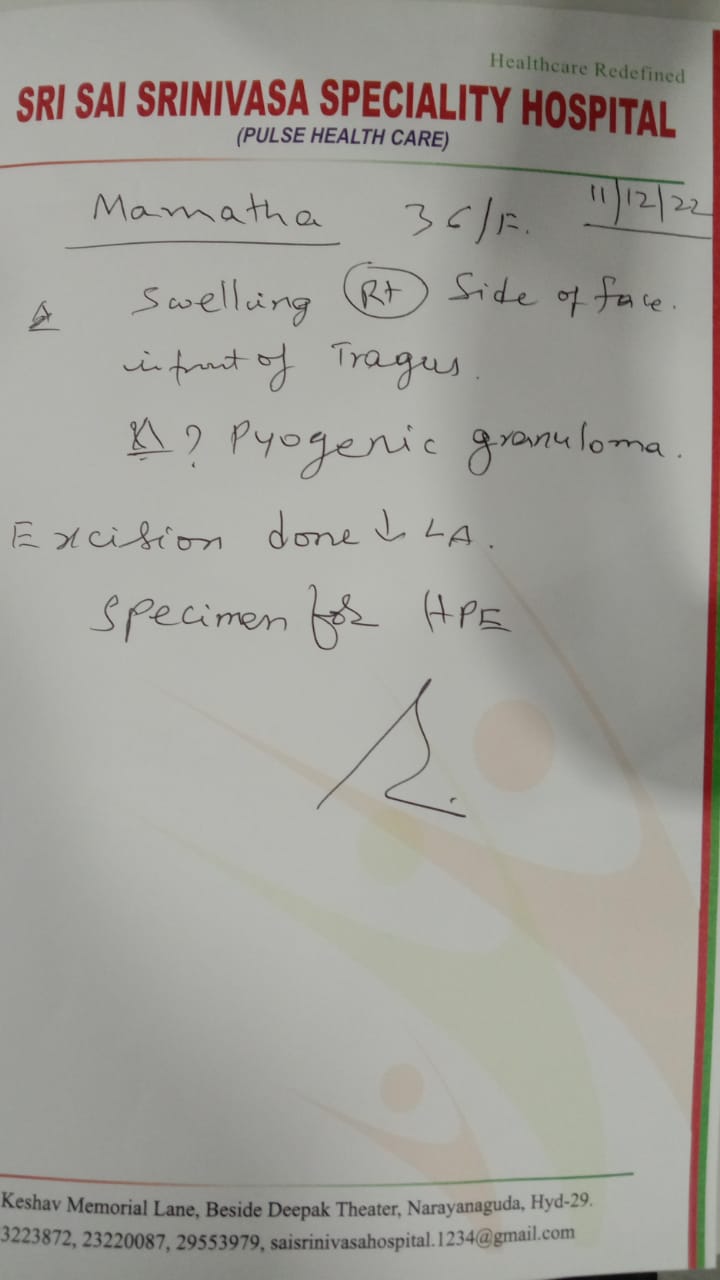 Healthcare Redefined
SRI SAI SRINIVASA SPECIALITY HOSPITAL
(PULSE HEALTH CARE)
Mamatha 36/F. 11/12/22
Swelling Rt Side of face.
in front of Tragus.
? Pyogenic granuloma.
Excision done ↓ LA.
Specimen for HPE
Keshav Memorial Lane, Beside Deepak Theater, Narayanaguda, Hyd-29.
3223872, 23220087, 29553979, saisrinivasahospital.1234@gmail.com